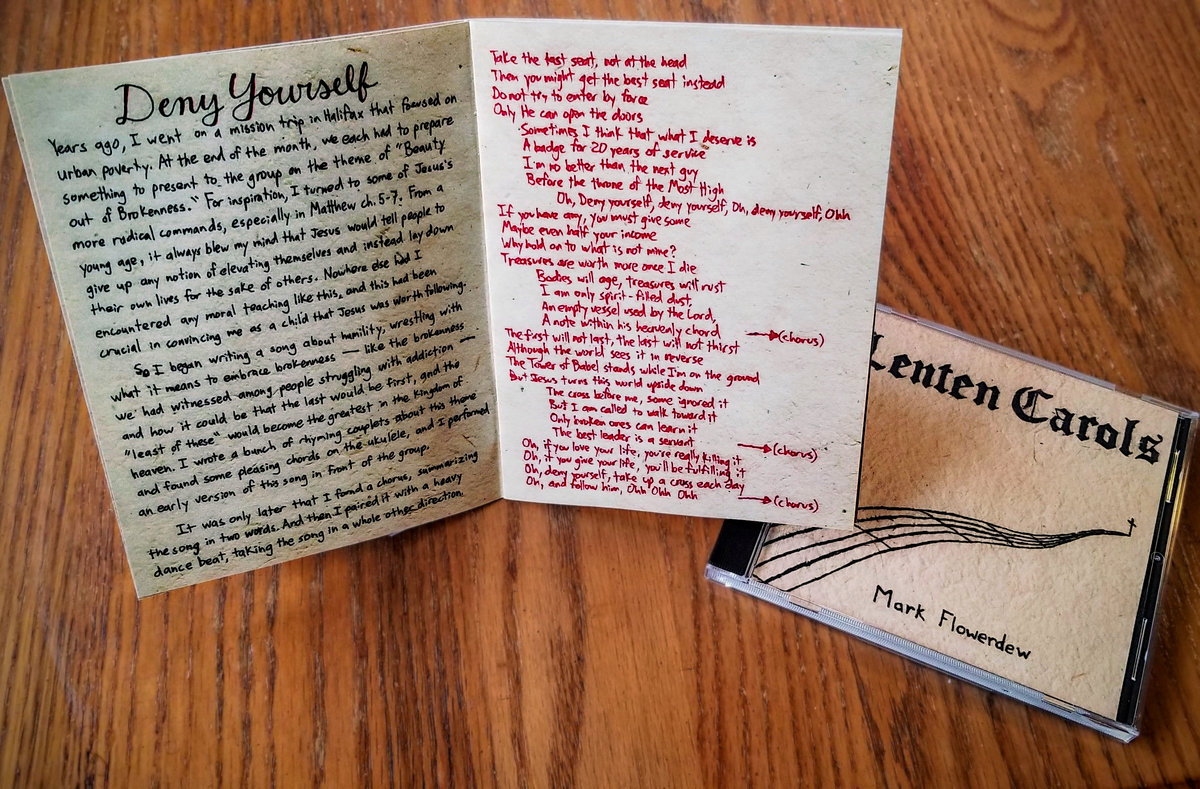 Deny Yourself
Years ago, I went on a mission trip in Halifax that focused on
urban poverty. At the end of the month, we each had to prepare
something to present to the group on the theme of "Beauty
out of Brokenness." For inspiration, I turned to some of Jesus's
more radical commands, especially in Matthew ch. 5-7. From a
young age, it always blew my mind that Jesus would tell people to
give up any notion of elevating themselves and instead lay down
their own lives for the sake of others. Nowhere else had I
encountered any moral teaching like this, and this had been
crucial in convincing me as a child that Jesus was worth following.
So I began writing a song about humility, wrestling with
what it means to embrace brokenness — like the brokenness
we had witnessed among people struggling with addiction —
and how it could be that the last would be first, and the
"least of these" would become the greatest in the kingdom of
heaven. I wrote a bunch of rhyming couplets about this theme
and found some pleasing chords on the ukulele, and I performed
an early version of this song in front of the group.
It was only later that I found a chorus, summarizing
the song in two words. And then I paired it with a heavy
dance beat, taking the song in a whole other direction.
Take the last seat, not at the head
Then you might get the best seat instead
Do not try to enter by force
Only He can open the doors
Sometimes I think that what I deserve is
A badge for 20 years of service
I'm no better than the next guy
Before the throne of the Most High
Oh, Deny yourself, deny yourself, Oh, deny yourself, Ohh
If you have any, you must give some
Maybe even half your income
Why hold on to what is not mine?
Treasures are worth more once I die
Bodies will age, treasures will rust
I am only spirit-filled dust,
An empty vessel used by the Lord,
A note within his heavenly chord → (chorus)
The first will not last, the last will not thirst
Although the world sees it in reverse
The Tower of Babel stands while I'm on the ground
But Jesus turns this world upside down
The cross before me, some ignored it
But I am called to walk toward it
Only broken ones can learn it
The best leader is a servant → (chorus)
Oh, if you love your life, you're really killing it
Oh, if you give your life, you'll be fulfilling it
Oh, deny yourself, take up a cross each day
Oh, and follow him, Ohh Ohh Ohh → (chorus)
Lenten Carols
Mark Flowerdew